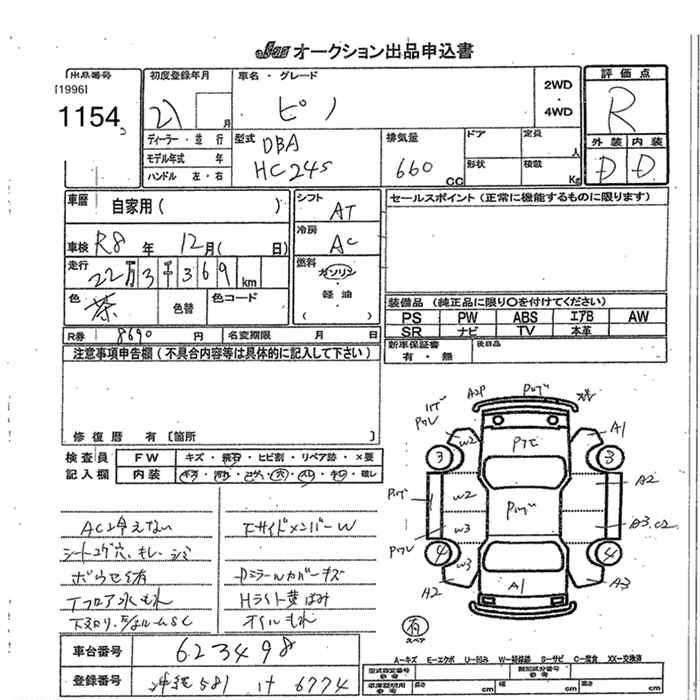 JAA オークション出品申込書
出品番号
[1996]
1154
初度登録年月
21 月
ディーラー・並行
モデル年式 年
ハンドル 左・右
車名・グレード
ピノ
2WD
・
4WD
評価点
R
外装 内装
D D
型式 DBA
HC24S
排気量
660 CC
ドア
形状
定員 人
積載 Kg
車歴 自家用( )
車検 R8 年 12 月( 日)
走行 22万3千369 km
色 茶 色替 色コード
シフト AT
冷房 AC
燃料 ガソリン
・
軽油
( )
セールスポイント(正常に機能するものに限ります)
装備品(純正品に限り○を付けてください)
PS PW ABS エアB AW
SR ナビ TV 本革
新車保証書 有・無 後日品
R券 8690 円 名変期限 月 日
注意事項申告欄(不具合内容等は具体的に記入して下さい)
修復歴 有〔箇所 〕
検査員 FW キズ・飛石・ヒビ割・リペア跡・×要
記入欄 内装
AC冷えない
シートコゲ穴、キレ、シミ
Fサイドメンバー W
DミラーカバーキズHライト黄ばみ
オイルもれ
A2P
W2
W3
W2
W3
A2
A1
A1
A2
A3.C2
A3
3 3
4 4
有
スペア
車台番号 623498
登録番号 沖縄 581 け 6774
A−キズ E−エクボ U−凹み W−補修跡 S−サビ C−腐食 XX−交換済
長さ cm 幅 cm 高さ cm